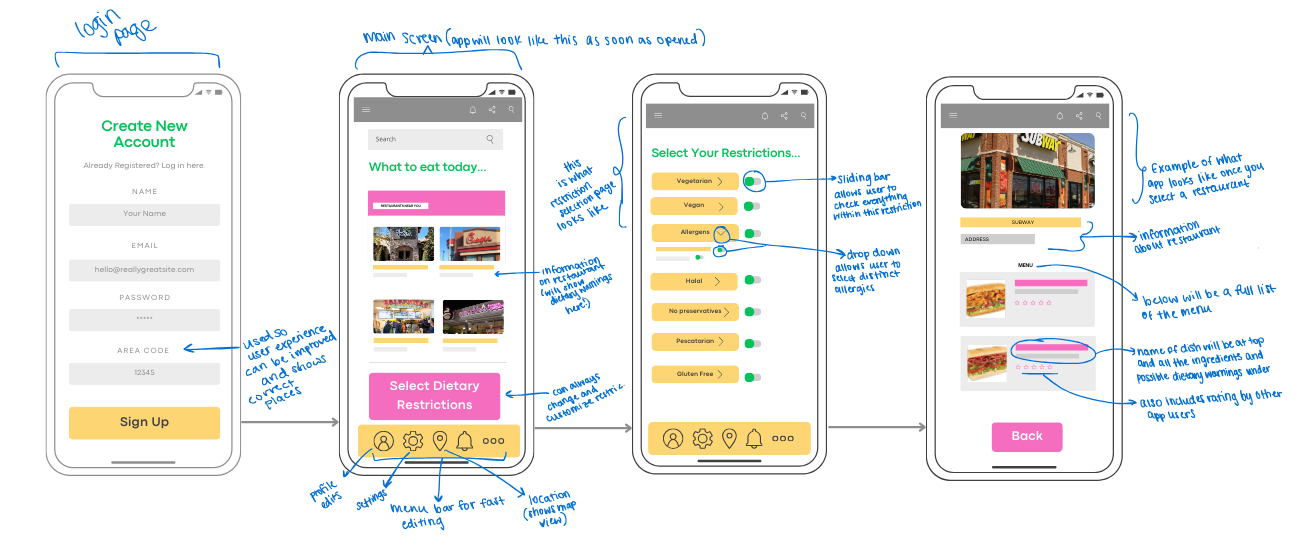 login
page
main screen (app will look like this as soon as opened)
Create New
Account
Already Registered? Log in here.
NAME
Your Name
EMAIL
hello@reallygreatsite.com
PASSWORD
*****
AREA CODE
12345
Sign Up
used so
user experience
can be improved
and shows
correct
places
Search
What to eat today...
RESTAURANTS NEAR YOU
information
on restaurant
(will show
dietary warnings
here!)
Select Dietary
Restrictions
can always
change and
customize restric.
profile
edits
settings
menu bar for fast
editing
location
(shows map
view)
this
is what
restriction
selection page
looks like
Select Your Restrictions...
Vegetarian
Vegan
Allergens
Halal
No preservatives
Pescatarian
Gluten Free
sliding bar
allows user to
check everything
within this restriction
drop down
allows user to
select distinct
allergies
SUBWAY
SUBWAY
ADDRESS
MENU
Back
Example of what
app looks like once you
select a restaurant
information
about restaurant
below will be a full list
of the menu
name of dish will be at top
and all the ingredients and
possible dietary warnings under
also includes rating by other
app users